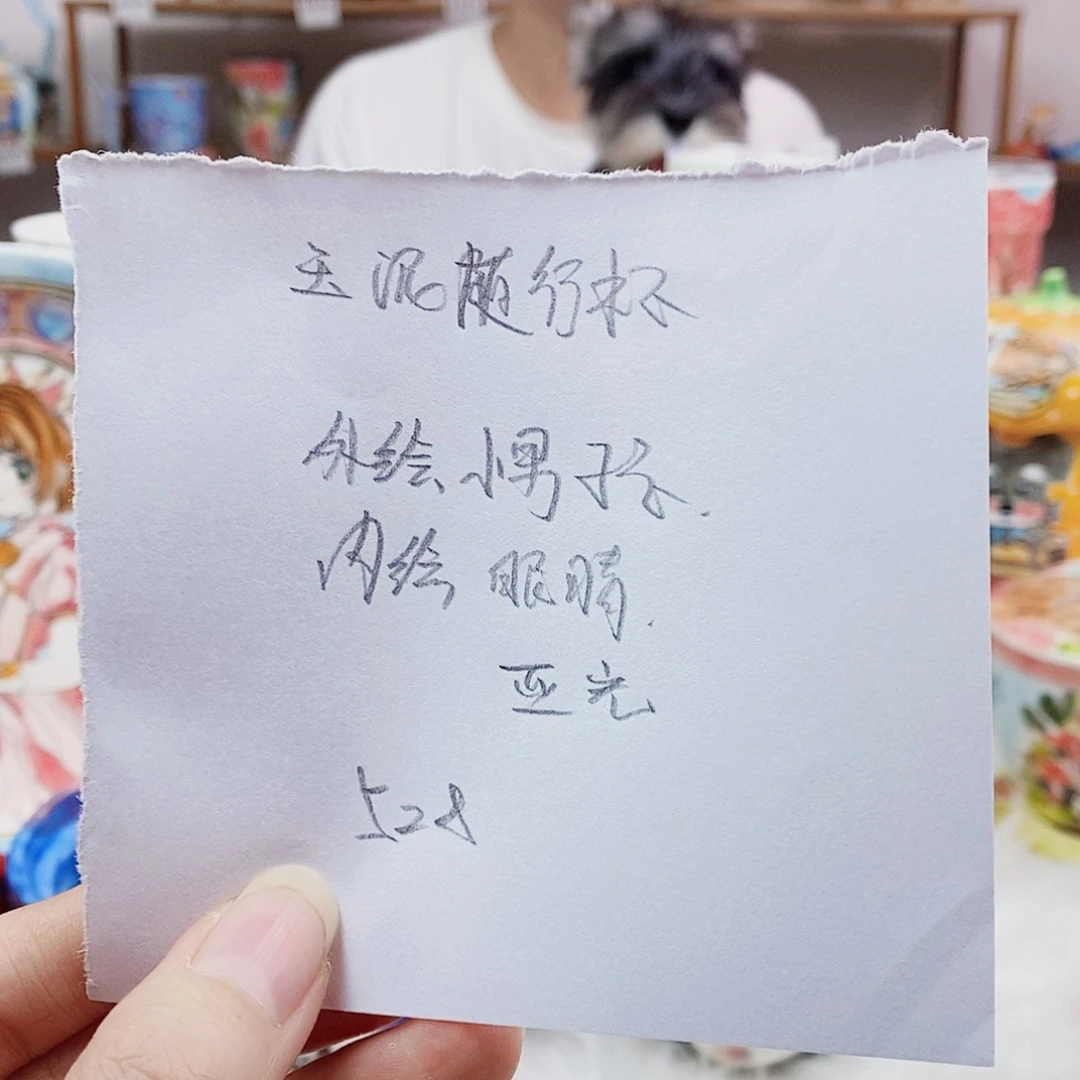 玉泥随行杯
外绘小男孩.
内绘眼睛.
亚光
528